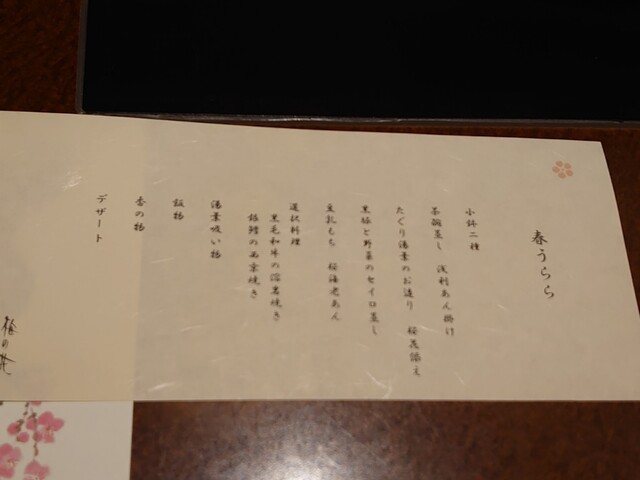 春うらら
小鉢二種
茶碗蒸し 浅利あん掛け
たぐり湯葉のお造り 桜花添え
黒豚と野菜のセイロ蒸し
豆乳もち 桜海老あん
選択料理
黒毛和牛の溶岩焼き
銀鱈の西京焼き
湯葉吸い物
飯物
香の物
デザート